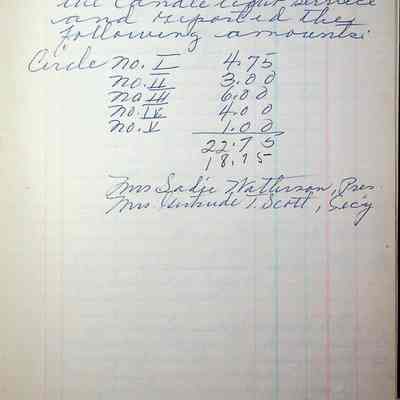 the Candle light service
and reported the
following amounts:
Circle No. I 4.75
No. II 3.00
No III 6.00
No. IV 4.00
No. V 1.00
22.75
18.75
Mrs Sadie Watterson, Pres.
Mrs Gertrude T. Scott, Secy